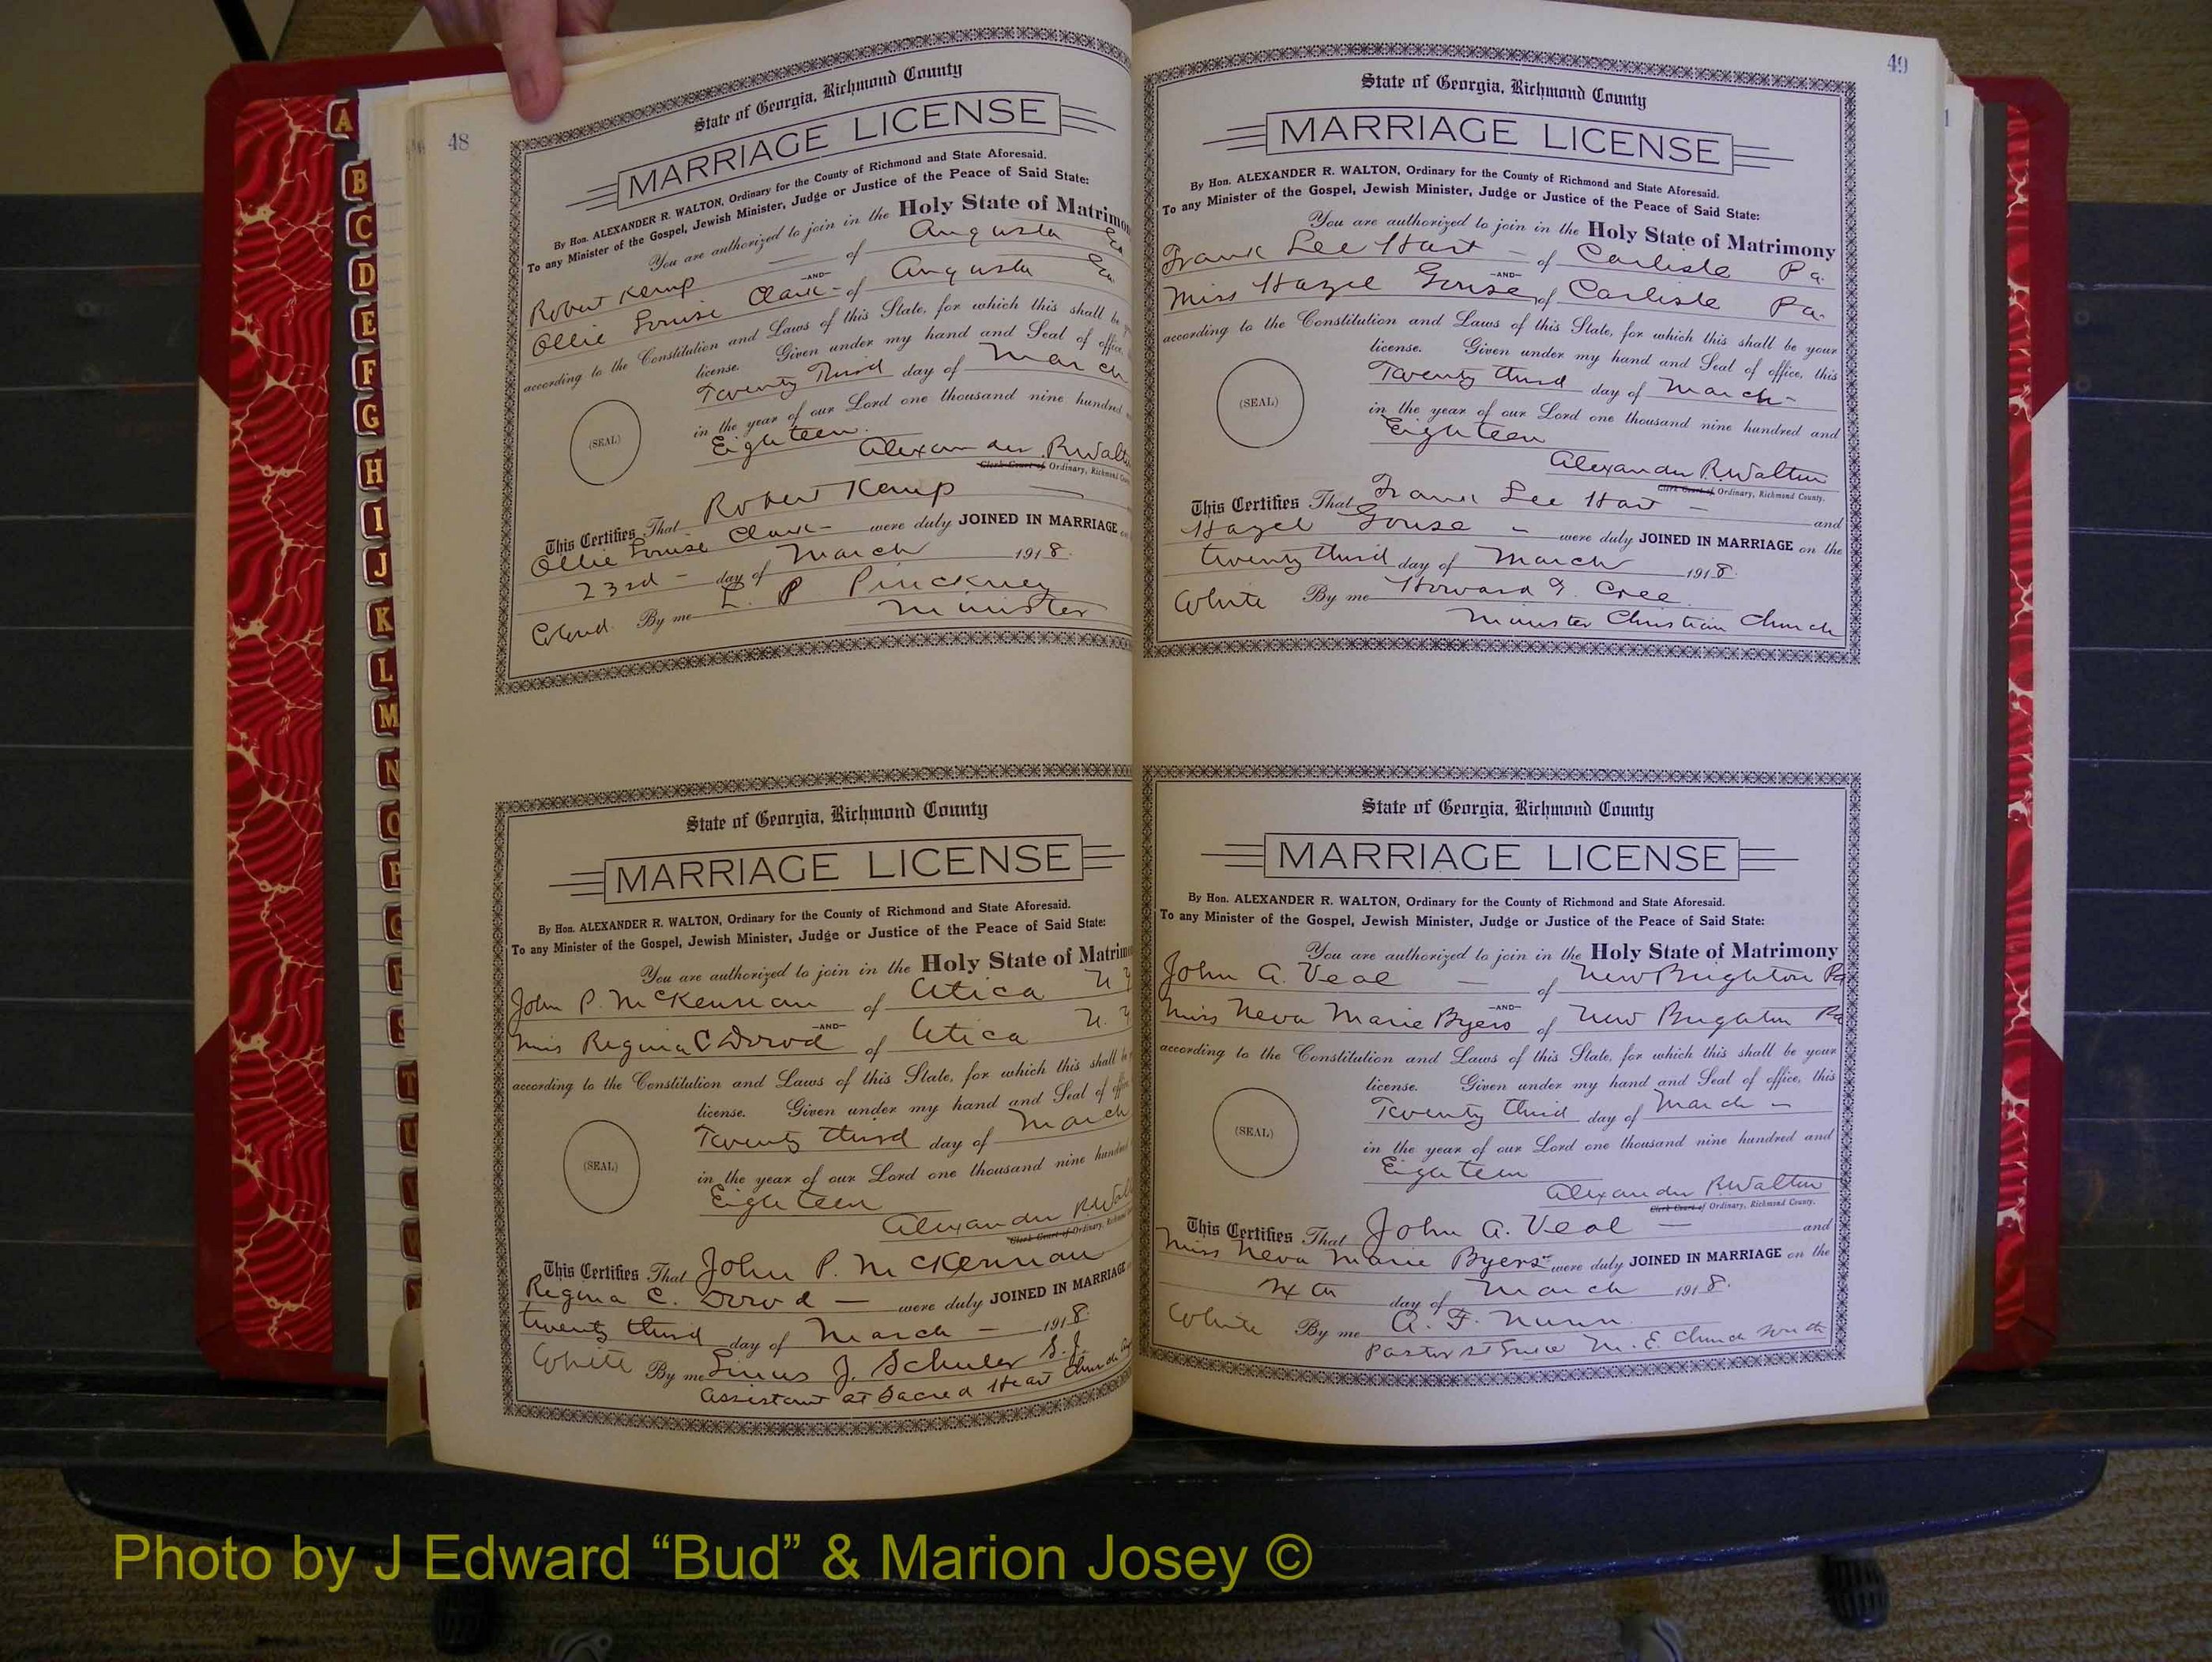 48
State of Georgia, Richmond County
MARRIAGE LICENSE
By Hon. ALEXANDER R. WALTON, Ordinary for the County of Richmond and State Aforesaid.
To any Minister of the Gospel, Jewish Minister, Judge or Justice of the Peace of Said State:
You are authorized to join in the Holy State of Matrimo
Robert Kemp — of Augusta Ga
-AND-
Ollie Louise Clark - of Augusta Ga
according to the Constitution and Laws of this State, for which this shall be
license. Given under my hand and Seal of office,
Twenty Third day of March
(SEAL)
in the year of our Lord one thousand nine hundred
Eighteen.
Alexander R Walt
Clerk Court of Ordinary, Richmond County
This Certifies That Robert Kemp —
Ollie Louise Clark - were duly JOINED IN MARRIAGE on
23rd - day of March 1918.
Colored. By me L. P Pinckney
Minister
State of Georgia, Richmond County
MARRIAGE LICENSE
By Hon. ALEXANDER R. WALTON, Ordinary for the County of Richmond and State Aforesaid.
To any Minister of the Gospel, Jewish Minister, Judge or Justice of the Peace of Said State:
You are authorized to join in the Holy State of Matrim
John P. McKennan of Utica N Y
-AND-
Miss Regina C Dowd of Utica N. Y
according to the Constitution and Laws of this State, for which this shall be
license. Given under my hand and Seal of offi
Twenty third day of March
(SEAL)
in the year of our Lord one thousand nine hundred
Eighteen
Alexander R Wal
Clerk Court of Ordinary, Richmond
This Certifies That John P. McKennan
Regina C. Dowd — were duly JOINED IN MARRIAGE
twenty third day of March - 1918.
White By me Linus J. Schuler S.J.
Assistant at Sacred Heart Church
49
State of Georgia, Richmond County
MARRIAGE LICENSE
By Hon. ALEXANDER R. WALTON, Ordinary for the County of Richmond and State Aforesaid.
To any Minister of the Gospel, Jewish Minister, Judge or Justice of the Peace of Said State:
You are authorized to join in the Holy State of Matrimony
Frank Lee Hart - of Carlisle Pa.
-AND-
Miss Hazel Gouse of Carlisle Pa.
according to the Constitution and Laws of this State, for which this shall be your
license. Given under my hand and Seal of office, this
Twenty third day of March -
(SEAL)
in the year of our Lord one thousand nine hundred and
Eighteen
Alexander R Walton
Clerk Court of Ordinary, Richmond County.
This Certifies That Frank Lee Hart - and
Hazel Gouse - were duly JOINED IN MARRIAGE on the
twenty third day of March 1918.
White By me Howard J. Cree.
Minister Christian Church
State of Georgia, Richmond County
MARRIAGE LICENSE
By Hon. ALEXANDER R. WALTON, Ordinary for the County of Richmond and State Aforesaid.
To any Minister of the Gospel, Jewish Minister, Judge or Justice of the Peace of Said State:
You are authorized to join in the Holy State of Matrimony
John A. Veal — of New Brighton Pa
-AND-
Miss Neva Marie Byers of New Brighton Pa
according to the Constitution and Laws of this State, for which this shall be your
license. Given under my hand and Seal of office, this
Twenty third day of March -
(SEAL)
in the year of our Lord one thousand nine hundred and
Eighteen
Alexander R Walton
Clerk Court of Ordinary, Richmond County.
This Certifies That John A. Veal — and
Miss Neva Marie Byers - were duly JOINED IN MARRIAGE on the
day of March 1918.
White By me A. F. Nunn
Pastor St M. E. Church South
A
B
C
D
E
F
G
H
I
J
K
L
M
N
O
P
Q
R
S
T
U
V
W
Photo by J Edward “Bud” & Marion Josey ©